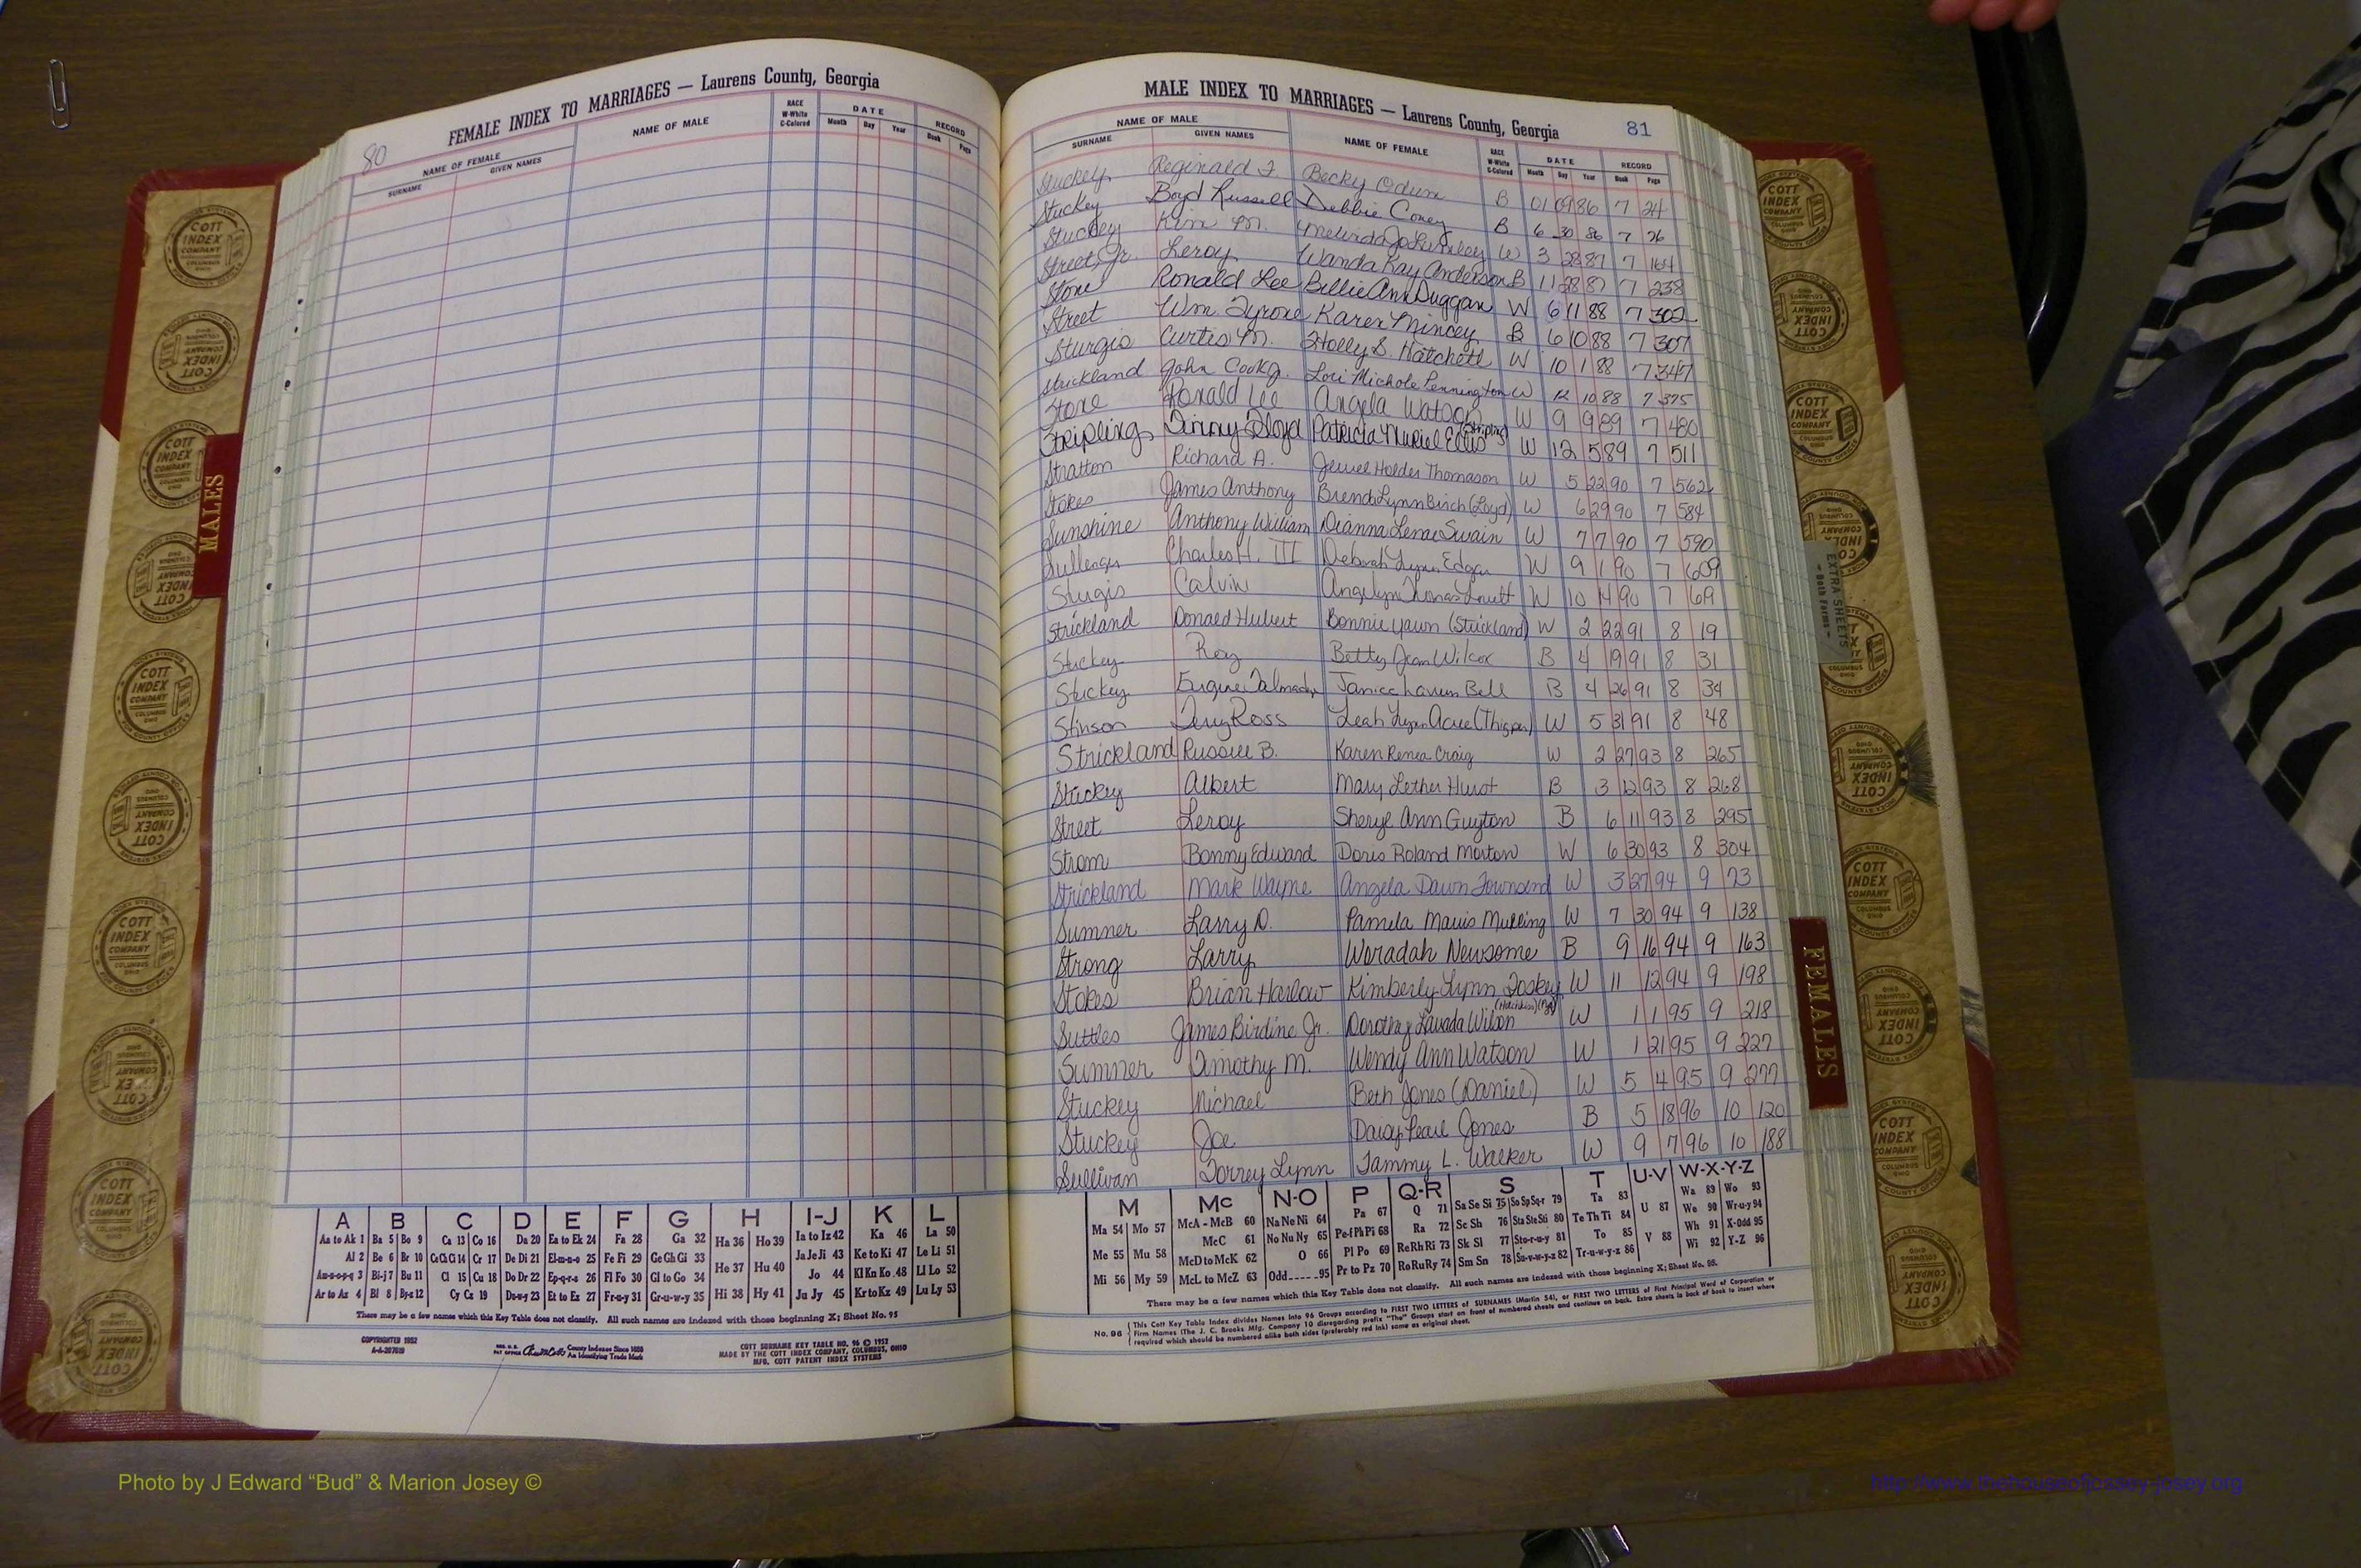 FEMALE INDEX TO MARRIAGES — Laurens County, Georgia
80
NAME OF FEMALE
SURNAME GIVEN NAMES
NAME OF MALE
RACE W-White C-Colored
DATE
Month Day Year
RECORD
Book Page
MALE INDEX TO MARRIAGES — Laurens County, Georgia 81
NAME OF MALE
SURNAME GIVEN NAMES
NAME OF FEMALE
RACE W-White C-Colored
DATE
Month Day Year
RECORD
Book Page
Stuckey Reginald J. Becky Odum B 01 09 86 7 24
Stuckey Boyd Russell Debbie Coney B 6 30 86 7 26
Stuckey Kim M. Melinda Jo Lumley W 3 28 87 7 164
Street, Jr. Leroy Wanda Kay Anderson B 11 28 87 7 238
Stone Ronald Lee Billie Ann Duggan W 6 11 88 7 302
Street Wm. Tyrone Karen Mincey B 6 10 88 7 307
Sturgis Curtis M. Holly S. Hatchett W 10 1 88 7 347
Strickland John Cook Lori Michole Pennington W 12 10 88 7 375
Stone Ronald Lee Angela Watson W 9 9 89 7 480
Stripling Jimmy Floyd Patricia Muriel Ellis (Stripling) W 12 5 89 7 511
Stratton Richard A. Jewel Holder Thomason W 5 22 90 7 562
Stokes James Anthony Brenda Lynn Birch (Loyd) W 6 29 90 7 584
Sunshine Anthony William Dianna Lenae Swain W 7 7 90 7 590
Sullenger Charles H. III Deborah Lynn Edgar W 9 1 90 7 609
Sturgis Calvin W 10 14 90 7 69
Strickland Donald Hubert Bonnie Yawn (Strickland) W 2 22 91 8 19
Stuckey Roy Betty Jean Wilcox B 4 19 91 8 31
Stuckey Eugene Talmadge Janice Bell B 4 26 91 8 34
Stinson Terry Ross Leah Lynn Acree (Thigpen) W 5 31 91 8 48
Strickland Russell B. Karen Renea Craig W 2 27 93 8 265
Stuckey Albert Mary Lether Hurst B 3 12 93 8 268
Street Leroy Sheryl Ann Guyton B 6 11 93 8 295
Strom Bonny Edward Doris Roland Morton W 6 30 93 8 304
Strickland Mark Wayne Angela Dawn Townsend W 3 27 94 9 73
Sumner Larry D. Pamela Mavis Mulling W 7 30 94 9 138
Strong Larry Weradah Newsome B 9 16 94 9 163
Stokes Brian Harlow Kimberly Lynn Toskey W 11 12 94 9 198
Suttles James Birdine Jr. Dorothy Lavada Wilson W 1 1 95 9 218
Sumner Timothy M. Wendy Ann Watson W 1 21 95 9 227
Stuckey Michael Beth Jones (Daniel) W 5 4 95 9 277
Stuckey Joe Daisy Pearl Jones B 5 18 96 10 120
Sullivan Torrey Lynn Tammy L. Walker W 9 7 96 10 188
A B C D E F G H I-J K L
Aa to Ak 1 Ba 5 Bo 9 Ca 13 Co 16 Da 20 Ea to Ek 24 Fa 28 Ga 32 Ha 36 Ho 39 Ia to Iz 42 Ka 46 La 50
Al 2 Be 6 Br 10 Ce Ch Ci 14 Cr 17 De Di 21 El-m-n-o 25 Fe Fi 29 Ge Gh Gi 33 He 37 Hu 40 Ja Je Ji 43 Ke to Ki 47 Le Li 51
Am-n-o-p-q 3 Bi-j 7 Bu 11 Cl 15 Cu 18 Do Dr 22 Ep-q-r-s 26 Fl Fo 30 Gl to Go 34 Jo 44 Kl Kn Ko 48 Ll Lo 52
Ar to Az 4 Bl 8 By-z 12 Cy Cz 19 Du-w-y 23 Et to Ez 27 Fr-u-y 31 Gr-u-w-y 35 Hi 38 Hy 41 Ju Jy 45 Kr to Kz 49 Lu Ly 53
There may be a few names which this Key Table does not classify. All such names are indexed with those beginning X; Sheet No. 95
COPYRIGHTED 1952
A-A-207610
County Indexes Since 1888
An Identifying Trade Mark
COTT SURNAME KEY TABLE NO. 96 © 1952
MADE BY THE COTT INDEX COMPANY, COLUMBUS, OHIO
MFG. COTT PATENT INDEX SYSTEMS
M Mc N-O P Q-R S T U-V W-X-Y-Z
Ma 54 Mo 57 McA - McB 60 Na Ne Ni 64 Pa 67 Q 71 Sa Se Si 75 So Sp Sq-r 79 Ta 83 U 87 Wa 89 Wo 93
Me 55 Mu 58 McC 61 No Nu Ny 65 Pe-f Ph Pi 68 Ra 72 Sc Sh 76 Sta Ste Sti 80 Te Th Ti 84 V 88 We 90 Wr-u-y 94
Mi 56 My 59 McD to McK 62 O 66 Pl Po 69 Re Rh Ri 73 Sk Sl 77 Sto-r-u-y 81 To 85 Wh 91 X-Odd 95
McL to McZ 63 Odd-----95 Pr to Pz 70 Ro Ru Ry 74 Sm Sn 78 Su-v-w-y-z 82 Tr-u-w-y-z 86 Wi 92 Y-Z 96
There may be a few names which this Key Table does not classify. All such names are indexed with those beginning X; Sheet No. 95.
No. 96 This Cott Key Table Index divides Names into 96 Groups according to FIRST TWO LETTERS of SURNAMES (Martin 54), or FIRST TWO LETTERS of First Principal Word of Corporation or
Firm Names (The J. C. Brooks Mfg. Company 10 disregarding prefix "The" Groups start on front of numbered sheets and continue on back. Extra sheets in back of book to insert where
required which should be numbered alike both sides (preferably red ink) same as original sheet.
MALES
FEMALES
EXTRA SHEETS
— Both Forms —
COTT INDEX COMPANY COLUMBUS OHIO
Photo by J Edward “Bud” & Marion Josey ©
http://www.thehouseofjossey-josey.org